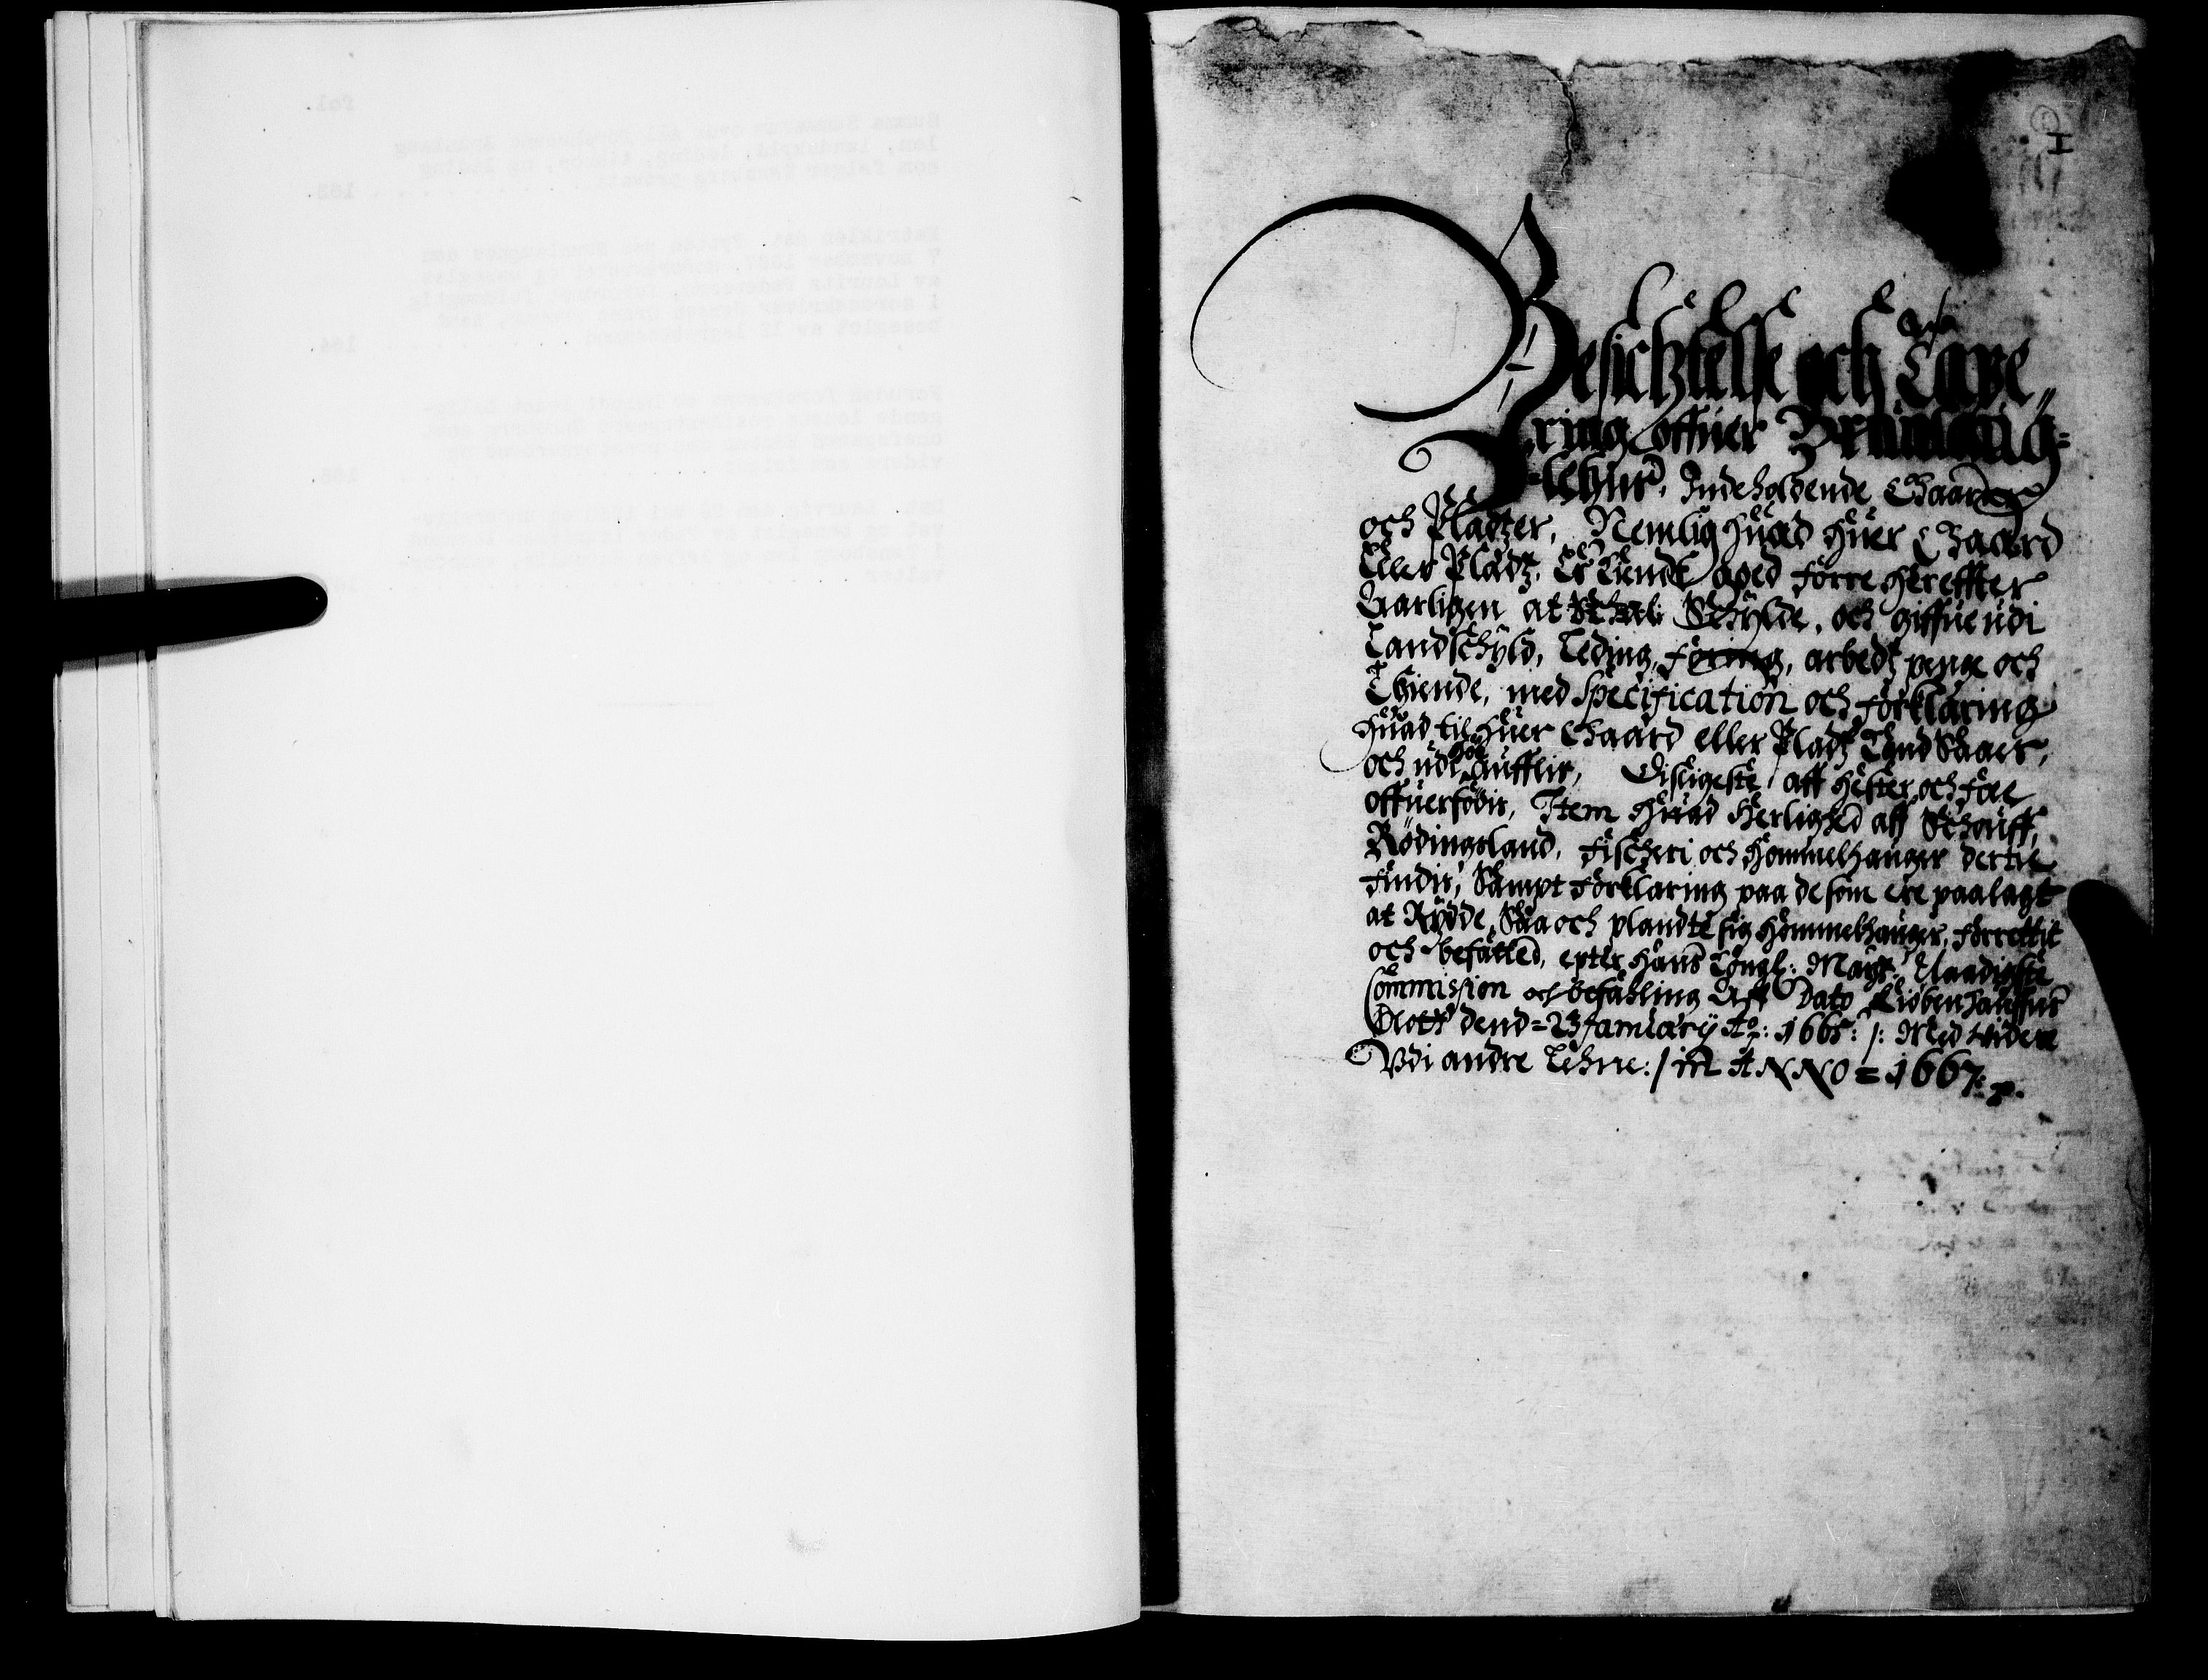 I
Besichtelse och Taxe„
ring offuer Brunlaug=
=Lehnr, Indeholdende Gaarder
och Pladtzer, Nemlig huad huer Gaard
Eller Pladtz, Er tiendt aged forre hereffter
Aarligen at Schylde, och giffue udi
Landschyld, Leding, foring, arbedtz penge och
Thiende, med Specification och forklaring
huad til huer Gaard eller Pladtz Land Saaer,
och udi auffler, Disligeste aff hester och föe
offuerfödis, Item huad Herlighed aff Schouff,
Rödingsland, fischeri och Hommelhauger dertil
findis, Sampt forklaring paa de som ere paalagt
at Rydde, Saa och plandte sig Hommelhauger, forrettit
och befatted, epter Hans Kongl: Mayt: Naadigste
Commission och befahling Aff Dato Kiöbenhauffns
Slott dend = 23 January Ao: 1665: /: Med widere
Vdi andre Lehne: / in ANNO = 1667: p.